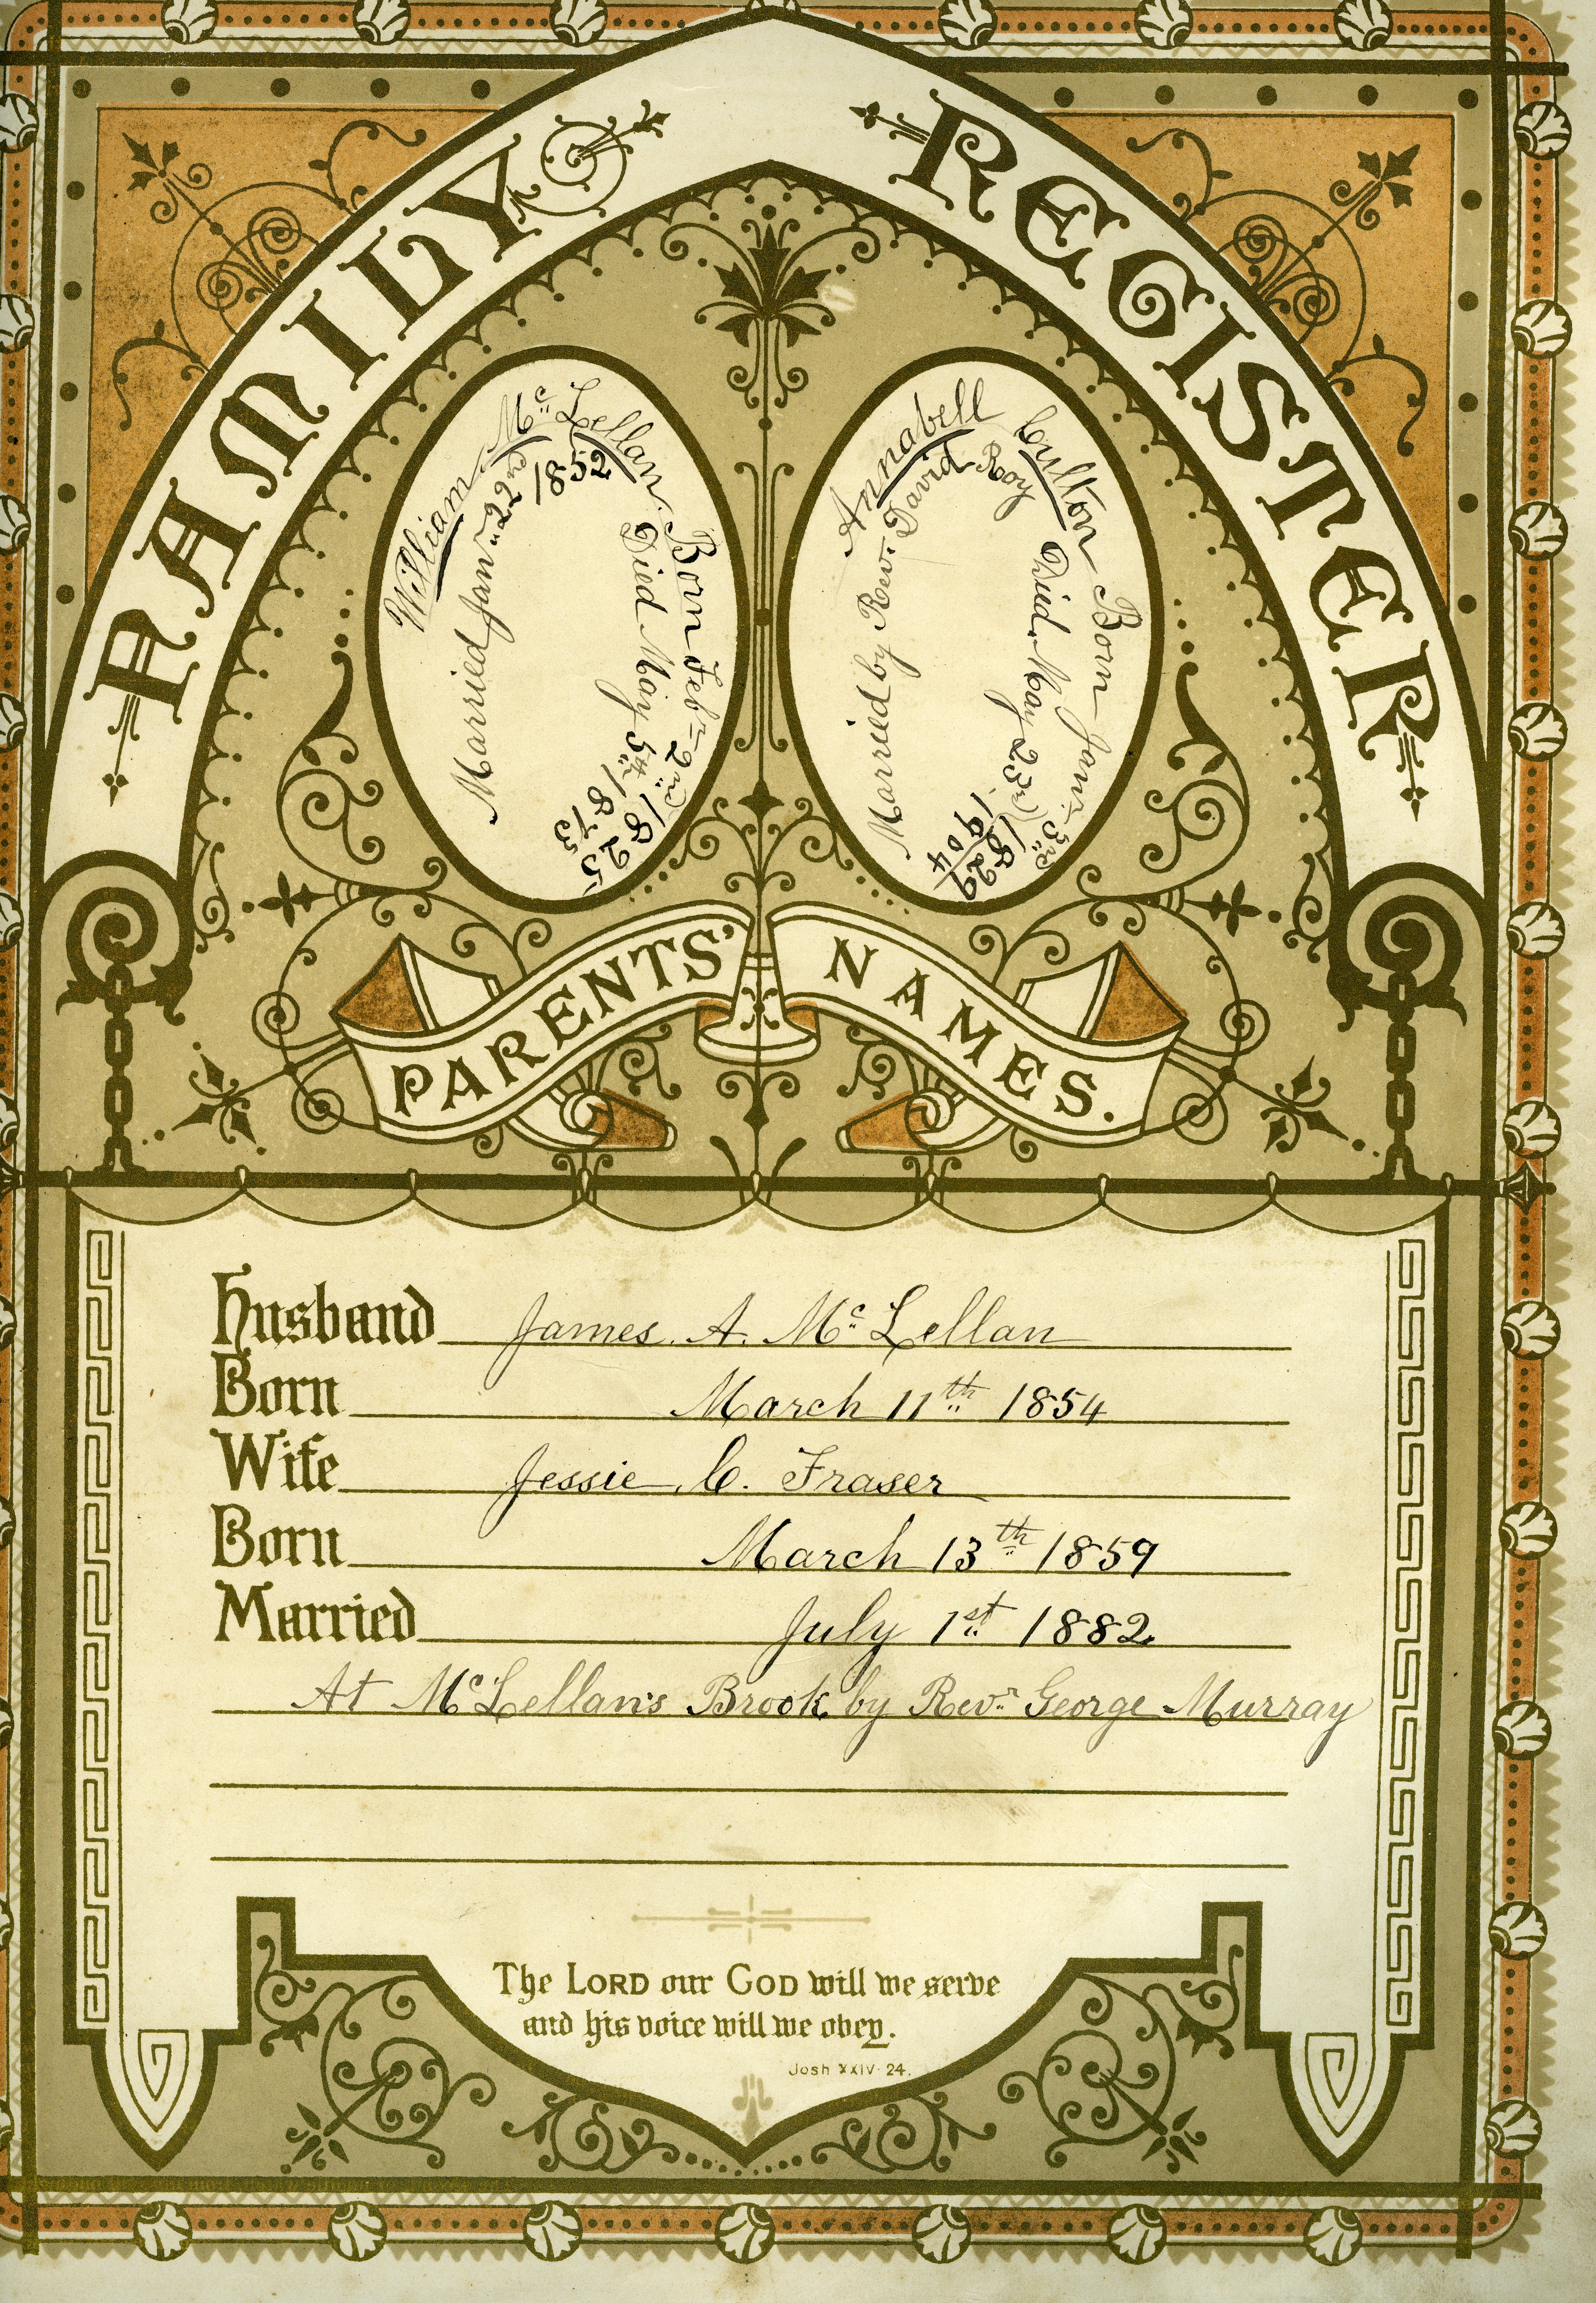 FAMILY REGISTER
William McLellan. Born Feb 2nd 1825
Married Jan 22nd 1852
Died May 5th 1873
Annabell Culton Born Jan 3rd 1829
Married by Rev. David Roy
Died May 23rd 1904
PARENTS' NAMES.
Husband James. A. McLellan
Born March 11th 1854
Wife Jessie. C. Fraser
Born March 13th 1859
Married July 1st 1882.
At McLellan's Brook by Revr George Murray
The LORD our GOD will we serve
and his voice will we obey.
Josh XXIV. 24.